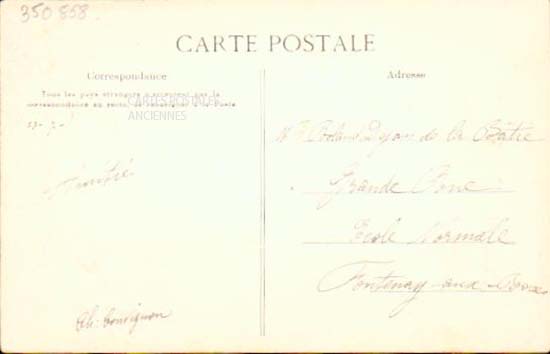 350 858.
CARTE POSTALE
Correspondance
Adresse
Tous les pays étrangers n'acceptent pas la
correspondance au recto, se renseigner à la Poste.
CARTES POSTALES
ANCIENNES
de la Bâtie
Amitié
Grande Rue
Ecole Normale
Fontenay aux Roses
Ch.